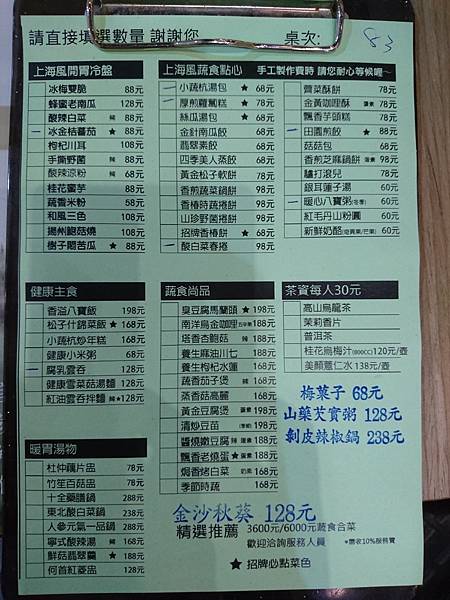 請直接填選數量 謝謝您 桌次: 83
上海風開胃冷盤
冰梅雙脆 88元
蜂蜜老南瓜 128元
酸辣白菜 辣 88元
一 冰金桔蕃茄 ★ 88元
枸杞川耳 108元
手撕野菌 辣 88元
酸辣涼粉 辣 68元
桂花蜜芋 88元
蔬香米粉 58元
和風三色 108元
揚州鮑菇燒 108元
樹子燜苦瓜 ★ 88元
上海風蔬食點心 手工製作費時 請您耐心等候喔~
一 小蔬杭湯包 ★ 68元
一 厚煎蘿蔔糕 ★ 78元
絲瓜湯包 ★ 68元
金針南瓜餃 68元
翡翠素餃 68元
四季美人蒸餃 68元
黃金松子軟餅 78元
香煎蔬菜鍋餅 98元
香椿時蔬捲餅 98元
山珍野菌捲餅 98元
招牌香椿餅 ★ 68元
一 酸白菜春捲 98元
薺菜酥餅 78元
金黃咖哩酥 蛋素 78元
飄香芋頭糕 78元
一 田園煎餃 ★ 88元
菇菇包 68元
香煎芝麻鍋餅 蛋素 98元
驢打滾兒 78元
銀耳蓮子湯 60元
一 暖心八寶粥(冬季) 60元
紅毛丹山粉圓 60元
新鮮奶酪 60元
健康主食
香溢八寶飯 198元
松子什錦菜飯 ★ 168元
小蔬杭炒年糕 168元
健康小米粥 68元
一 腐乳雲吞 128元
健康雪菜菇湯麵 128元
紅油雲吞拌麵 辣★128元
蔬食尚品
臭豆腐馬蘭頭 ★ 198元
南洋烏金咖哩 188元
塔香杏鮑菇 辣 188元
養生麻油川七 188元
養生枸杞水蓮 168元
蔬香茄子煲 辣 168元
蒸香菇高麗 168元
黃金豆腐煲 蛋素 198元
清炒豆苗 198元
醬燒嫩豆腐 辣 蛋素 188元
飄香老燒蛋 ★ 蛋素 188元
焗香烤白菜 奶素 168元
季節時蔬 168元
茶資每人30元
高山烏龍茶
茉莉香片
普洱茶
桂花烏梅汁(800CC)120元/壺
美顏薏仁水 138元/壺
梅菓子 68元
山藥芡實粥 128元
剝皮辣椒鍋 238元
暖胃湯物
杜仲藕片盅 78元
竹笙百菇盅 78元
十全藥膳鍋 288元
東北酸白菜鍋 238元
人參元氣一品鍋 298元
寧式酸辣湯 辣 168元
鮮菇翡翠羹 ★ 188元
何首紅菱盅 128元
金沙秋葵 128元
精選推薦 3600元/6000元蔬食合菜
歡迎洽詢服務人員 *需收10%服務費
★ 招牌必點菜色